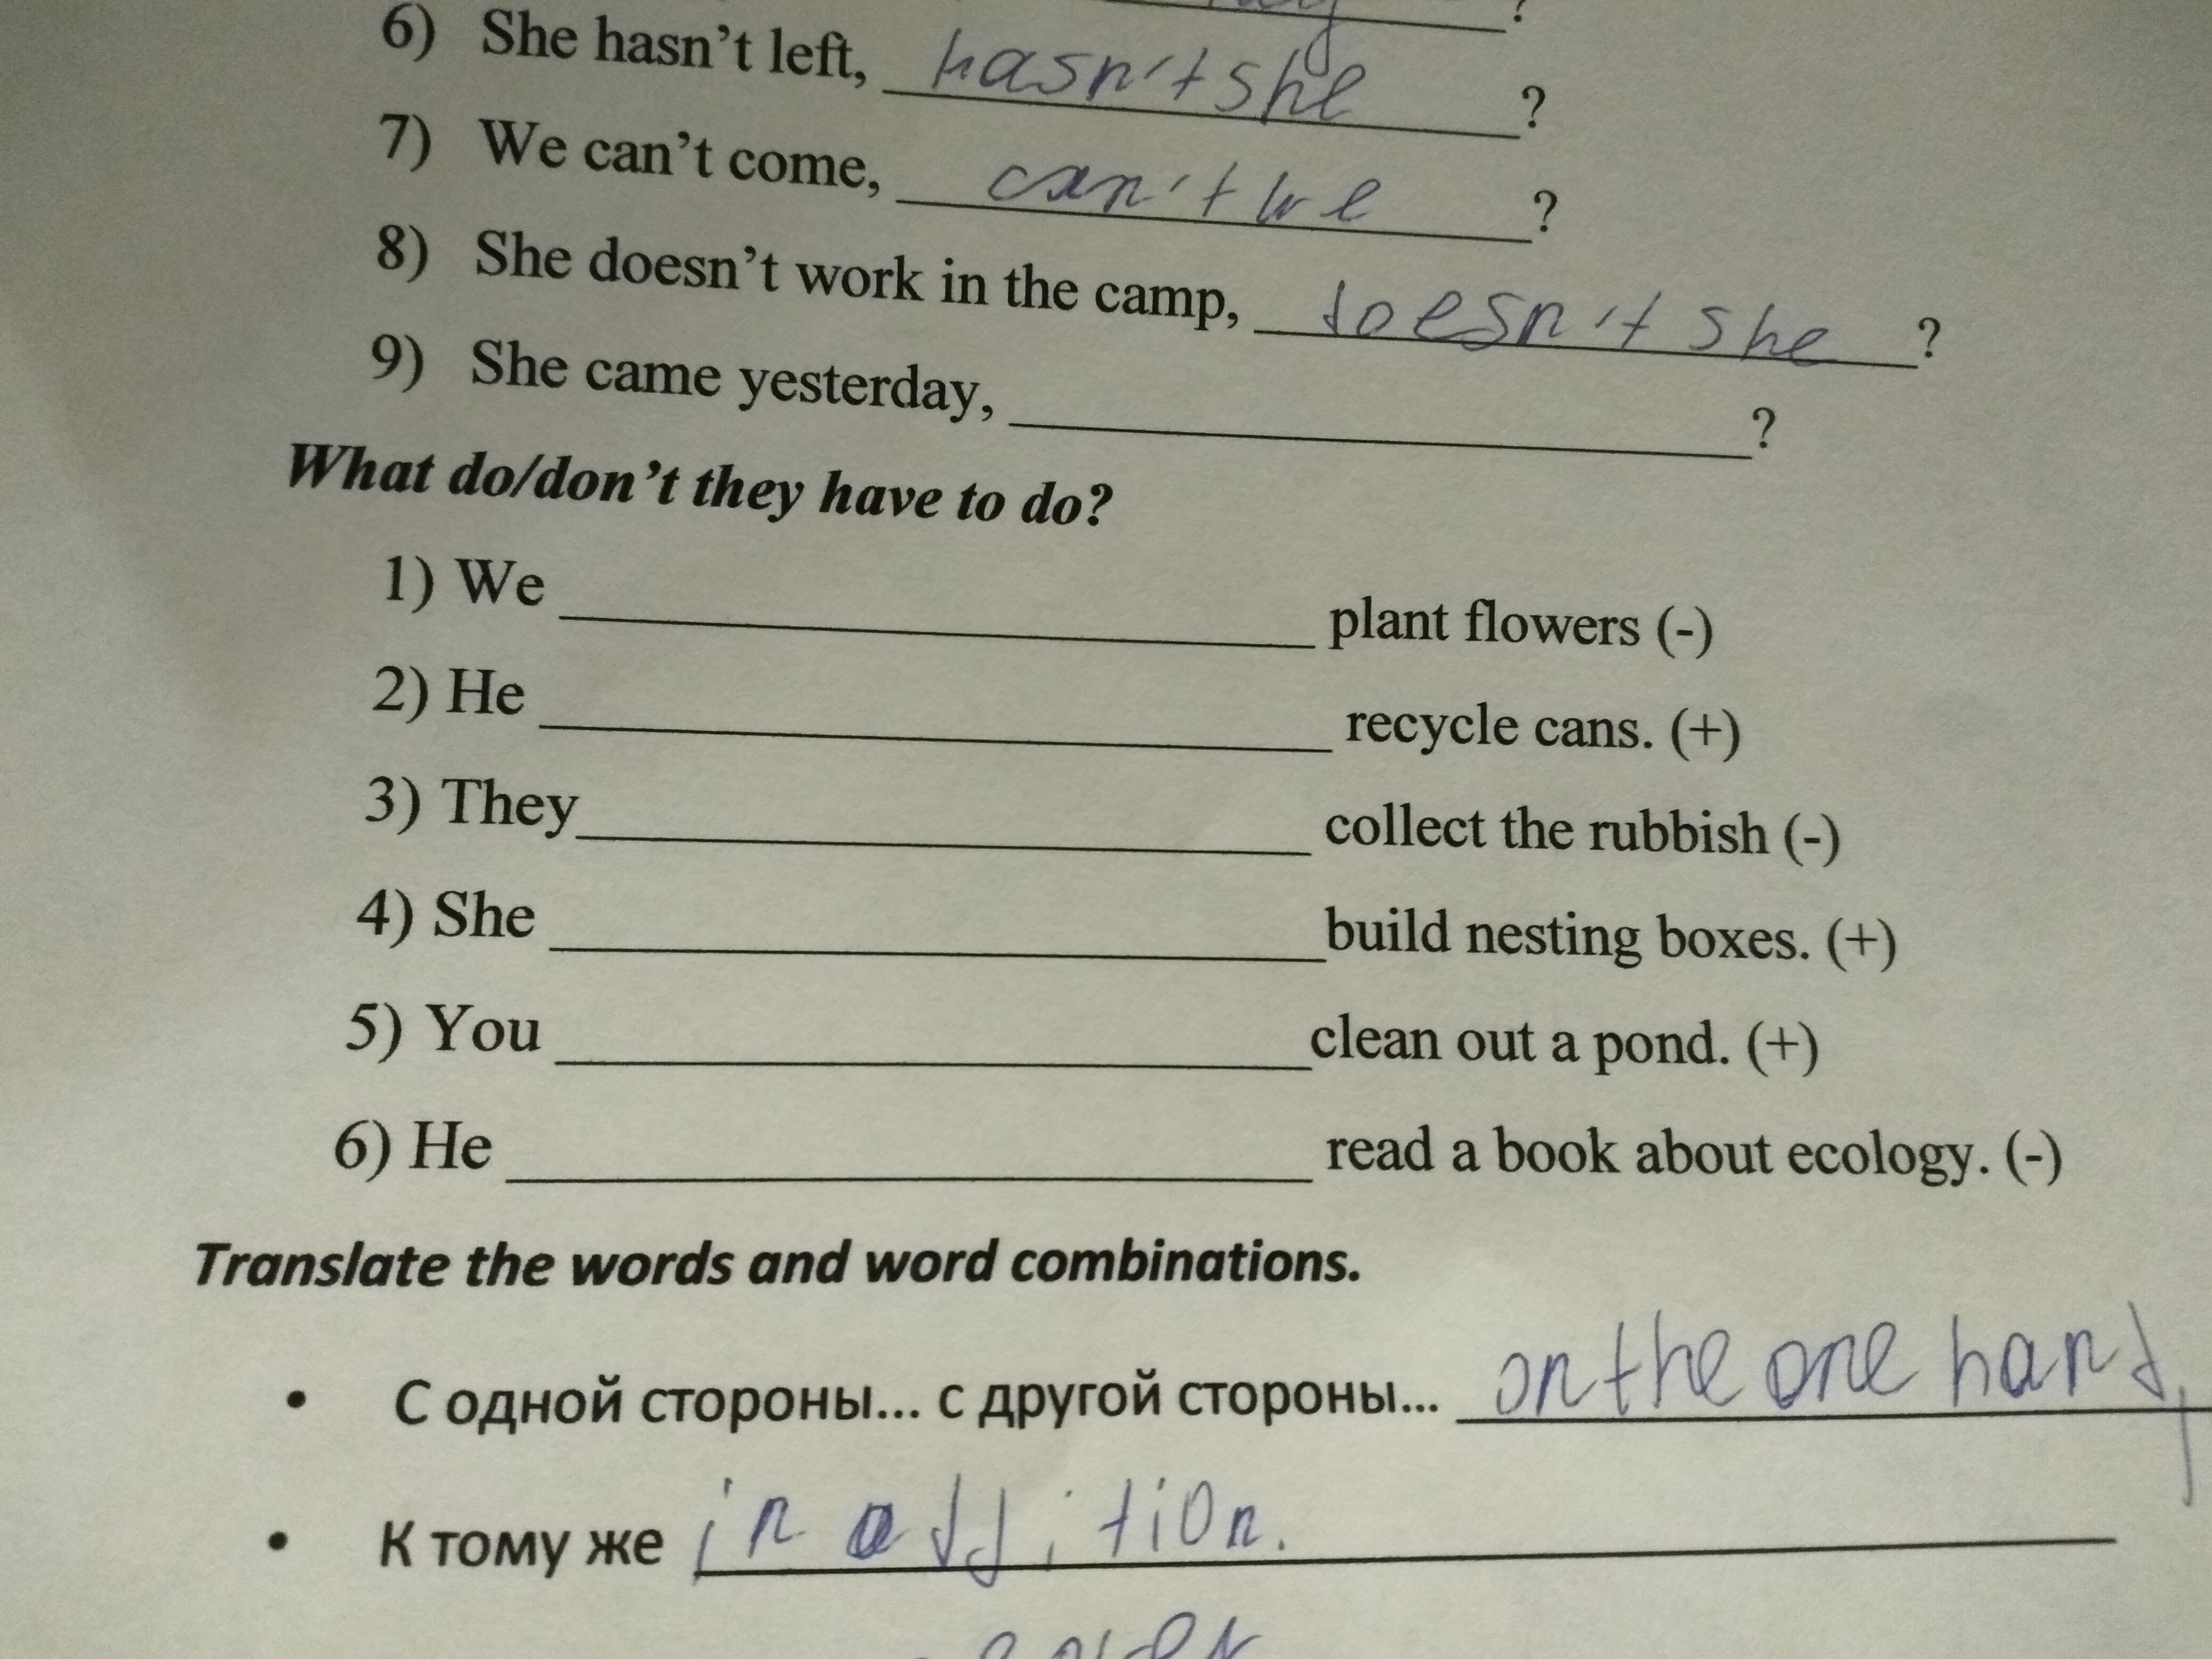 ?
6) She hasn't left, hasn't she ?
7) We can't come, can't we ?
8) She doesn't work in the camp, doesn't she ?
9) She came yesterday, ?
What do/don't they have to do?
1) We plant flowers (-)
2) He recycle cans. (+)
3) They collect the rubbish (-)
4) She build nesting boxes. (+)
5) You clean out a pond. (+)
6) He read a book about ecology. (-)
Translate the words and word combinations.
• С одной стороны... с другой стороны... on the one hand,
• К тому же in addition.